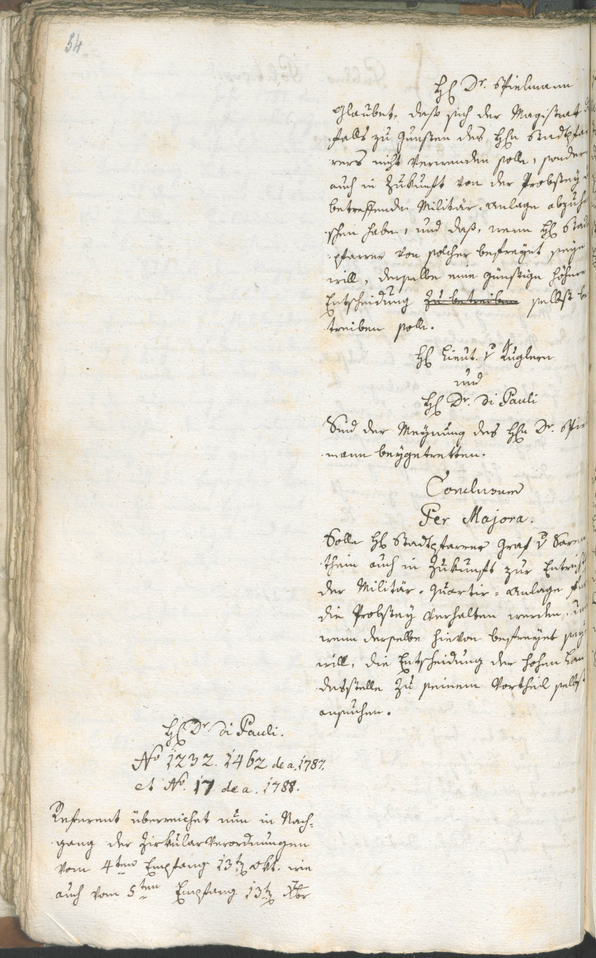 54
H. Dr. Spielmann
Glaubet, daß sich der Magistrat
falls zu Gunsten des Hhn Stadtpfar
rers nicht verwenden solle, sonder
auch in Zukunft von der Probstey
betreffenden Militär-Anlage abzuse
schen habe, und daß, wenn H. Stad
pfarrer von solcher befreyet seyn
will, derselbe eine günstige höhere
Entscheidung zu betreiben selbst be
treiben solle.
H. Lieut. v Kuglern
und
H. Dr. Di Pauli
Sind der Meynung des Hhn Dr. Spiel
mann beygetretten.
Conclusum
Per Majora.
Solle H. Stadtpfarrer Graf v Sarn
thein auch in Zukunft zur Entrich
der Militär-Quartir-Anlage für
die Probstey verhalten werden, un
wenn derselbe hievon befreyet seyn
will, die Entscheidung der hohen Lan
desstelle zu seinem Vortheil selbst
ansuchen.
H. Dr. Di Pauli.
No 1232. 1462 de a. 1787.
et No. 17 de a. 1788.
Referent überreichet nun in Nach-
gang der Zirkularverordnungen
vom 4ten Empfang 13ten Okt. wie
auch vom 5ten Empfang 13ten Xbr